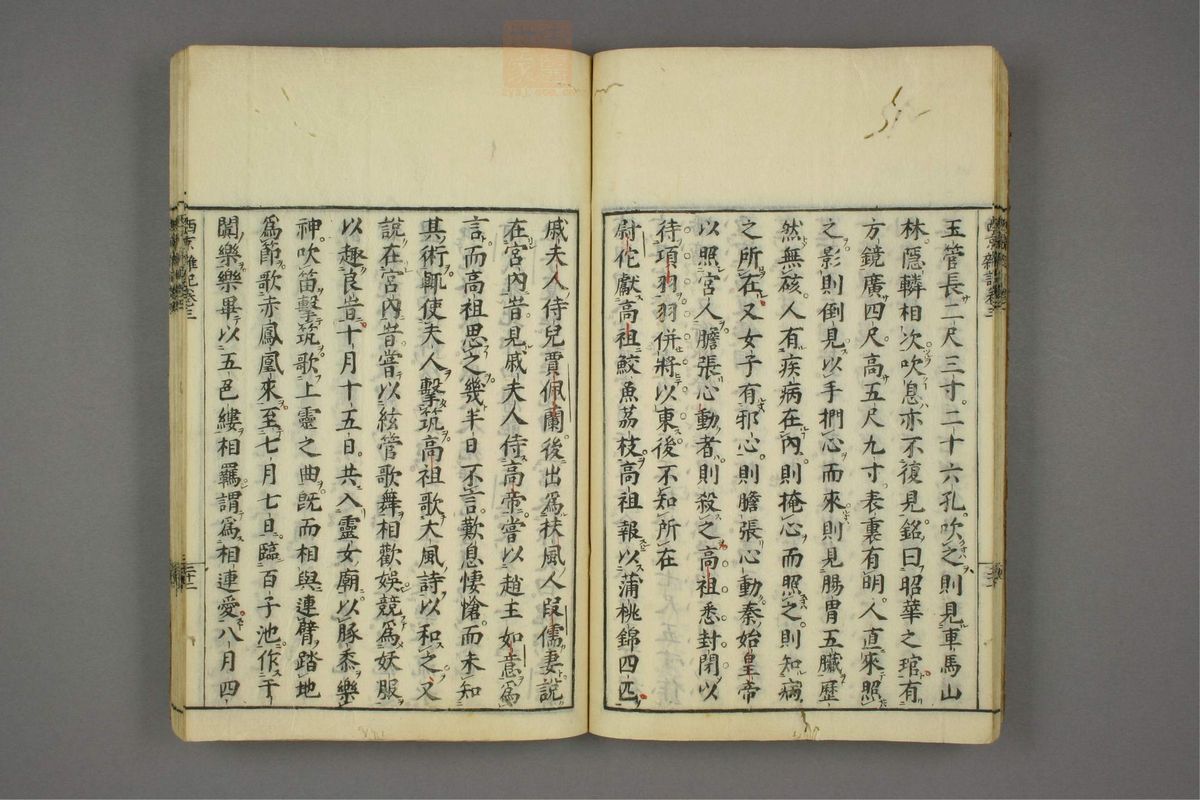 玉管長二尺三寸二十六孔吹之則見車馬山
林隱轔相次吹息亦不復見銘曰昭華之琯有
方鏡廣四尺高五尺九寸表裏有明人直來照
之影則倒見以手捫心而來則見腸胃五臟歷
然無硋人有疾病在內則掩心而照之則知病
之所在又女子有邪心則膽張心動秦始皇帝
以照宮人膽張心動者則殺之高祖悉封閉以
待項羽羽併將以東後不知所在
尉佗獻高祖鮫魚荔枝高祖報以蒲桃錦四匹
戚夫人侍兒賈佩蘭後出爲扶風人段儒妻說
在宮內旹見戚夫人侍高帝嘗以趙王如意爲
言而高祖思之幾半日不言歎息悽愴而未知
其術輒使夫人擊筑高祖歌大風詩以和之又
說在宮內旹嘗以絃管歌舞相歡娛競爲妖服
以趣良旹十月十五日共入靈女廟以豚黍樂
神吹笛擊筑歌上靈之曲既而相與連臂踏地
爲節歌赤鳳凰來至七月七日臨百子池作于
闐樂樂畢以五色縷相羈謂爲相連愛八月四
西京雜記卷三
西京雜記卷三